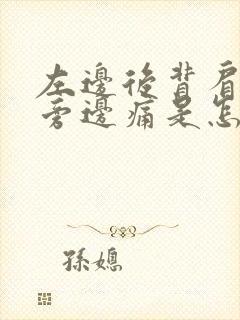 左邊後背肩
旁邊痛是怎
孫媳